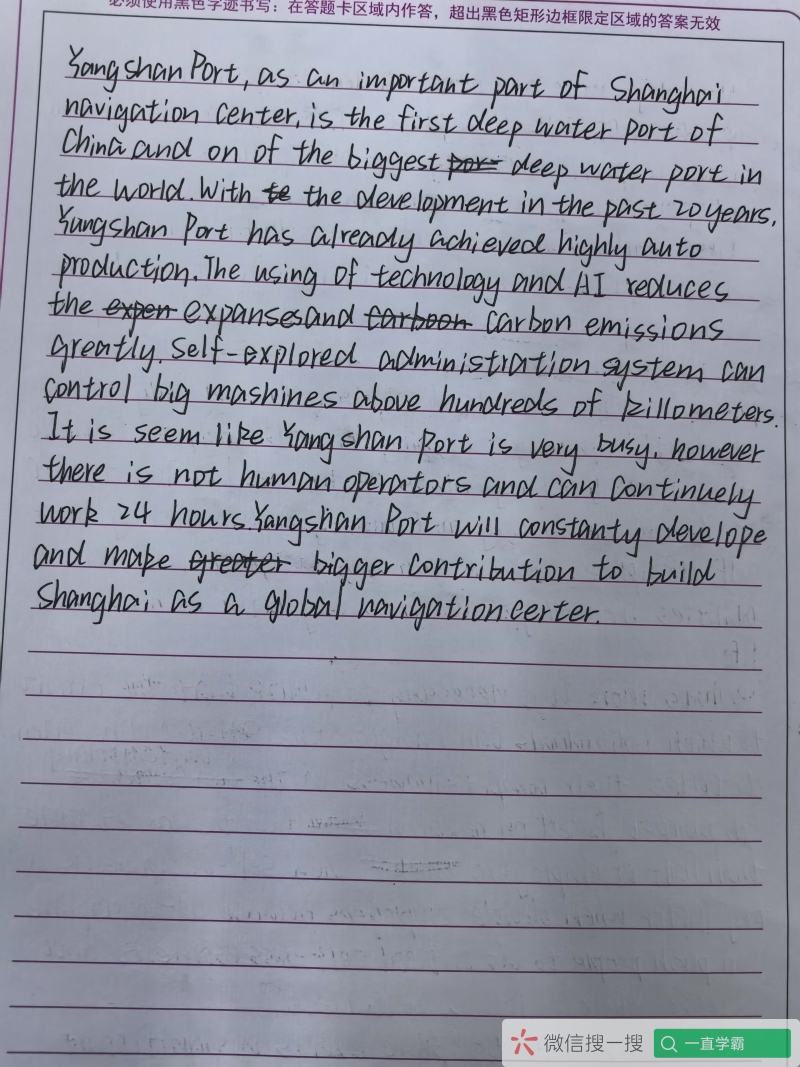 必须使用黑色字迹书写：在答题卡区域内作答，超出黑色矩形边框限定区域的答案无效
Yangshan Port, as an important part of Shanghai
navigation center, is the first deep water port of
China and on of the biggest por deep water port in
the world. With te the development in the past 20 years,
Yangshan Port has already achieved highly auto
production. The using of technology and AI reduces
the expen expanses and carboon carbon emissions
greatly. Self-explored administration system can
control big mashines above hundreds of killometers.
It is seem like Yangshan Port is very busy, however
there is not human operators and can continuely
work 24 hours. Yangshan Port will constanty develope
and make greater bigger contribution to build
Shanghai as a global navigation certer.
微信搜一搜
一直学霸